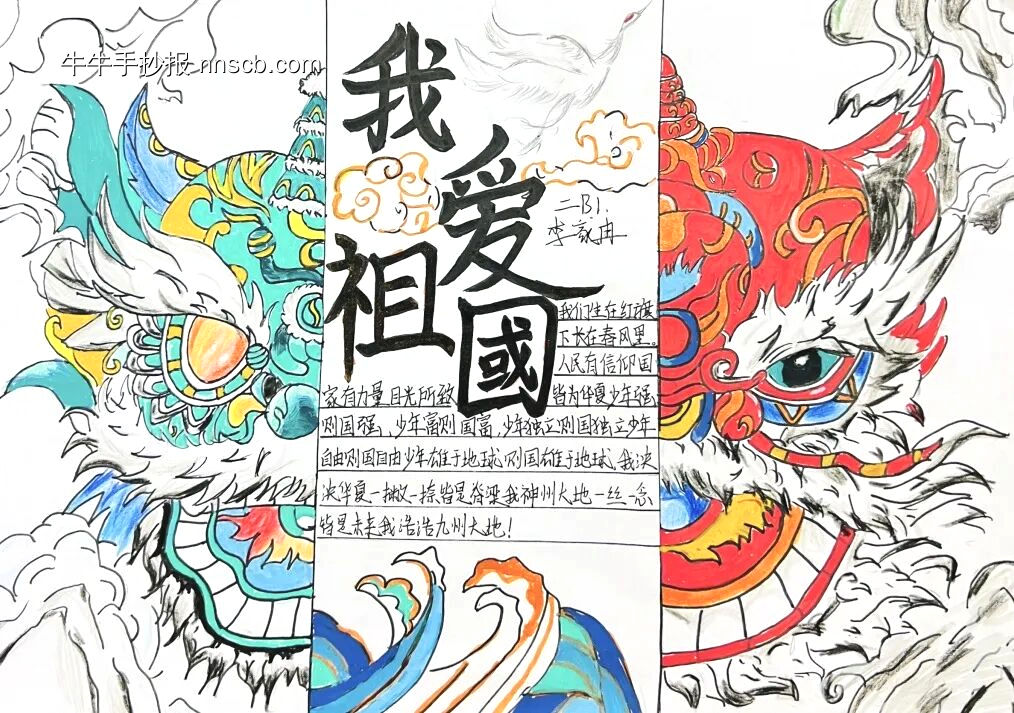 牛牛手抄报 nnscb.com
我
爱
祖
國
二B1.
李
我们生在红旗
下长在春风里。
人民有信仰国
家有力量目光所致 皆为华夏少年强,
则国强、少年富则国富,少年独立则国独立少年
自由则国自由少年雄于地球,则国雄于地球、我泱
泱华夏一撇一捺皆是脊梁我神州大地一丝一念
皆是未来我浩浩九州大地!